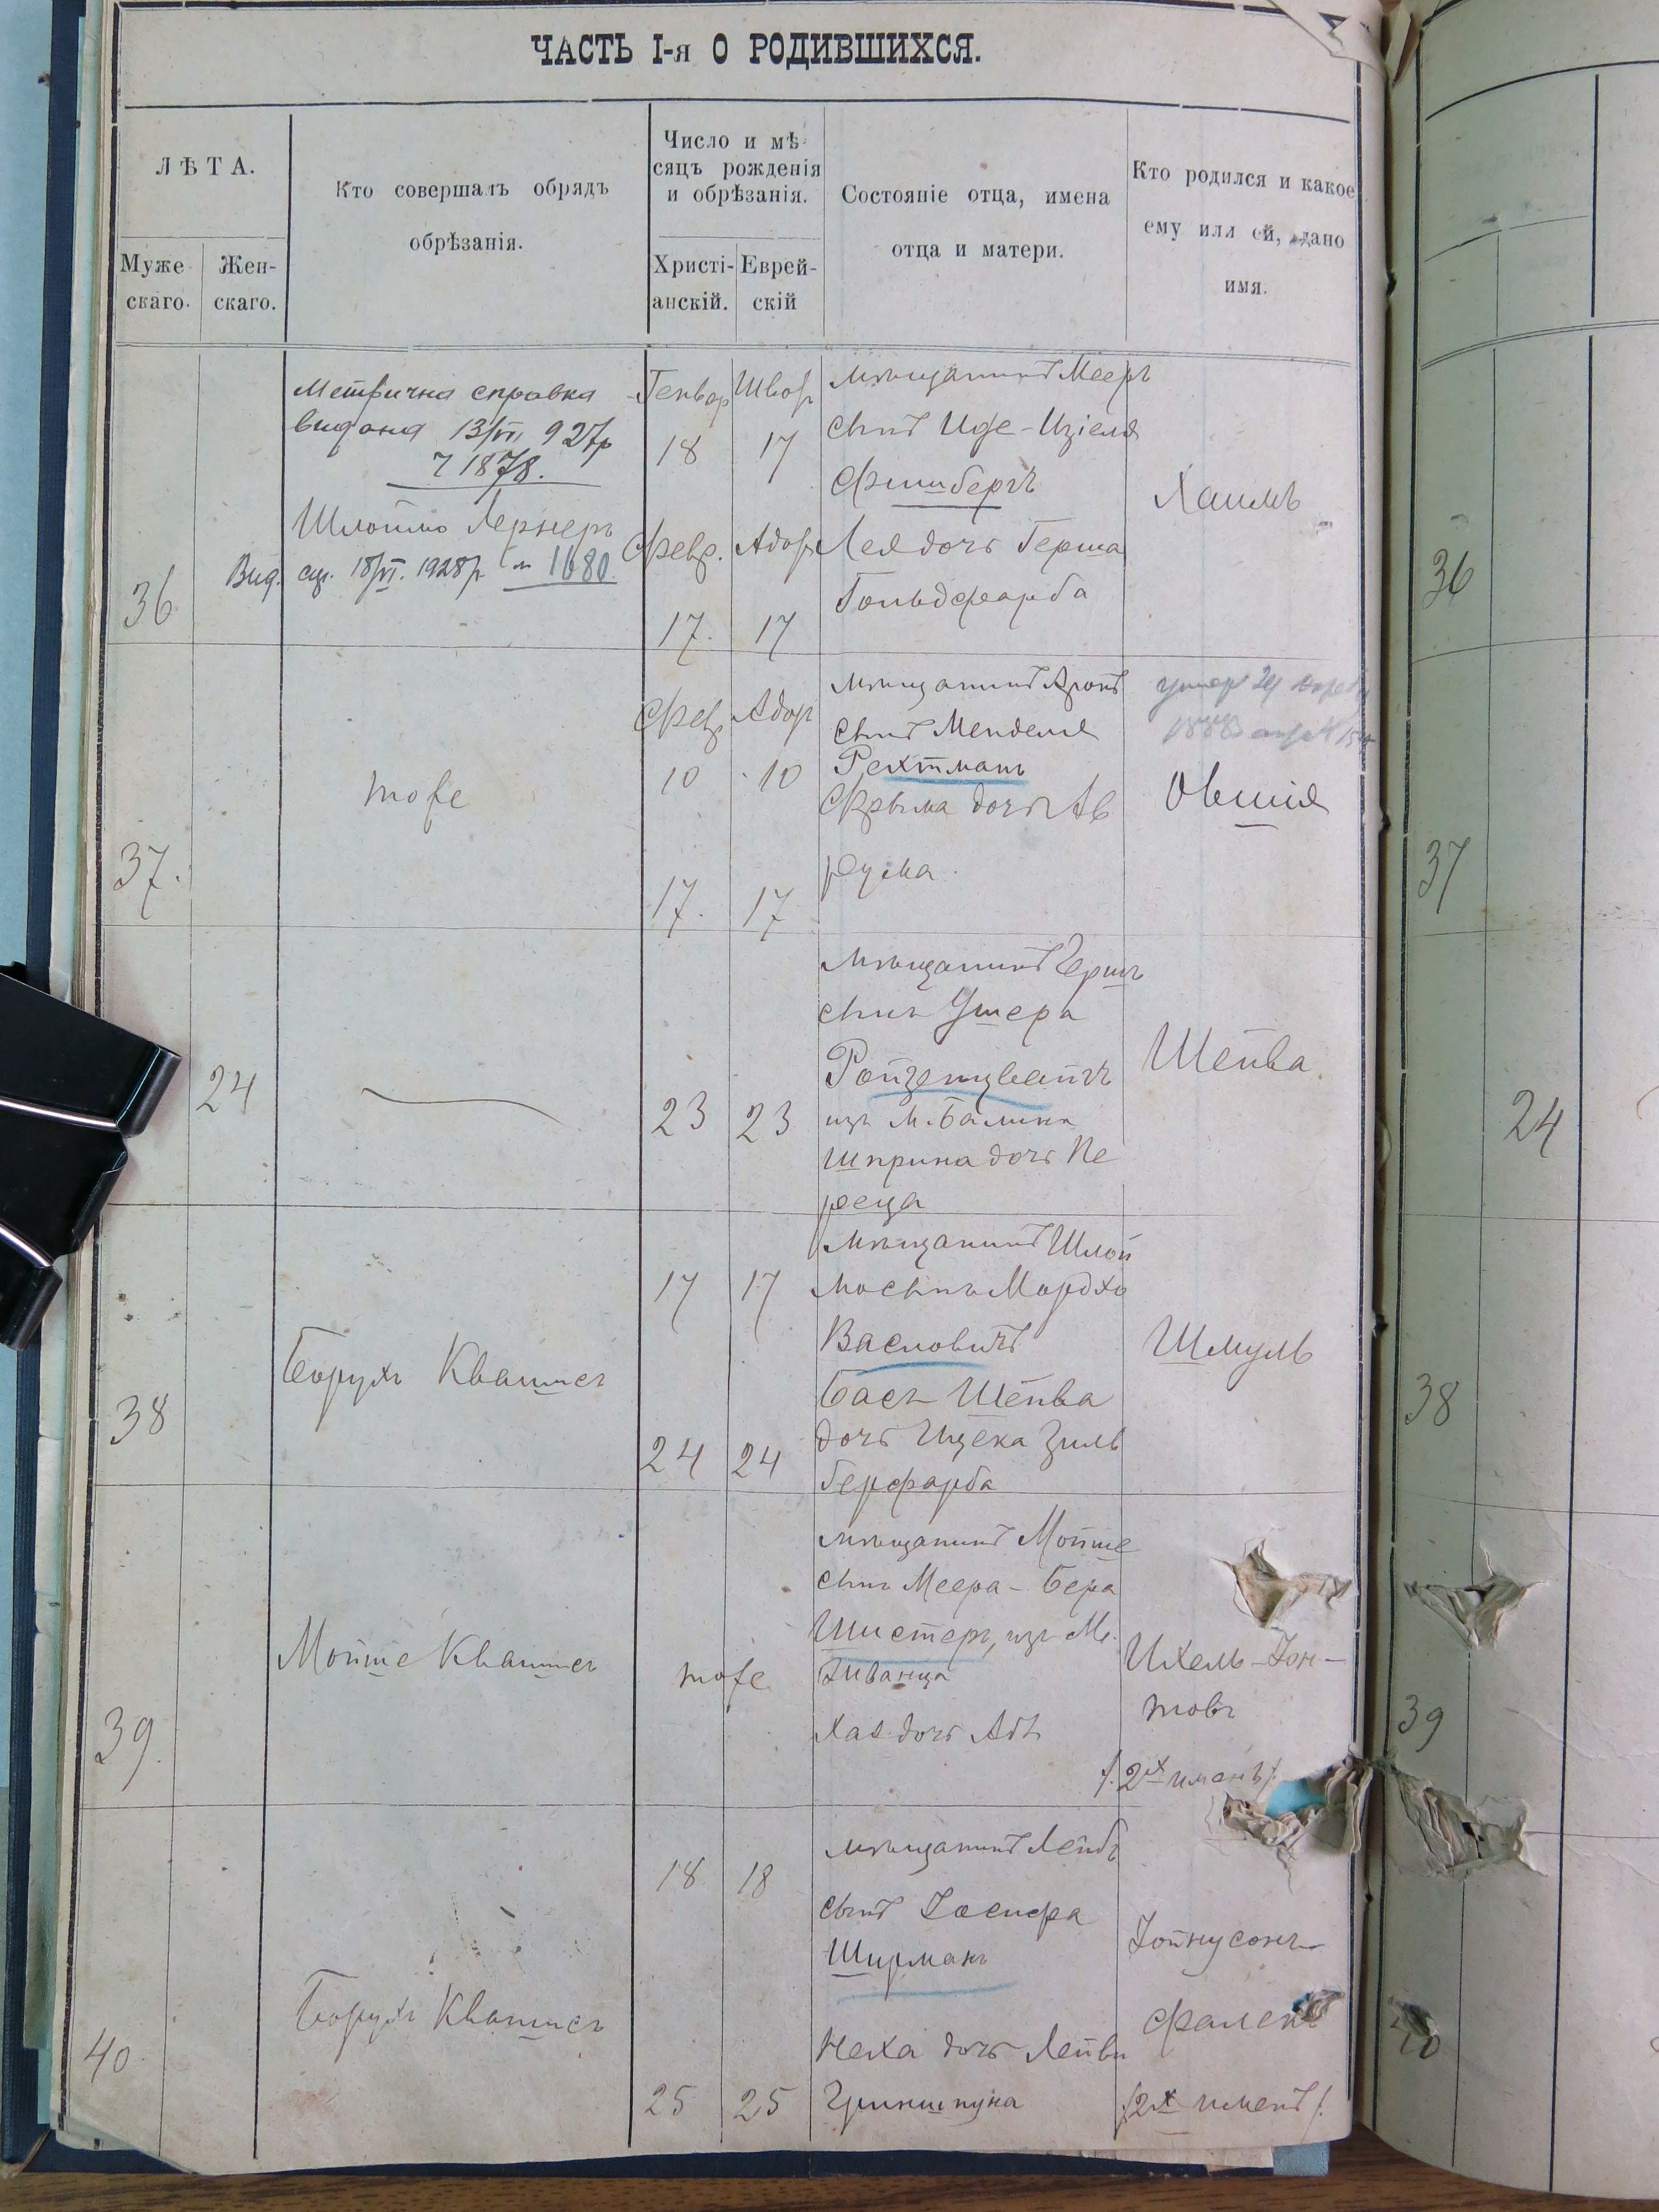 ЧАСТЬ I-я О РОДИВШИХСЯ.
ЛѢТА.
Муже
скаго.
Жен-
скаго.
Кто совершалъ обрядъ
обрѣзанія.
Число и мѣ-
сяцъ рожденія
и обрѣзанія.
Христі-
анскій.
Еврей-
скій
Состояніе отца, имена
отца и матери.
Кто родился и какое
ему или ей, дано
имя.
36
Метрична справка
видана 13/VI 927р
1878.
Шлойма Лернеръ
Вид. 18/VI. 1928р. № 1680.
Генвар
18
Февр.
17.
Шват
17
Адор
17
мѣщанинъ Мееръ
сынъ Иде-Иціеля
Фишбергъ
Лея дочь Герша
Гольдфарба
Хаимъ
36
37.
тоже
Февр
10
17.
Адор
10
17
мѣщанинъ Аронъ
сынъ Менделя
Рехтманъ
Фрыма дочь Ав
рума.
умер 24
1888
Овшія
37
24
23
23
мѣщанинъ Гершъ
сынъ Ушера
Ройзенцвайгъ
изъ м. Балина
Шприна дочь Пе
реца
Шейва
24
38
Борухъ Квашисъ
17
24
17
24
мѣщанинъ Шлой
ма сынъ Мордхо
Васловичъ
Бася Шейва
дочь Ицека Зиль
берфарба
Шмуль
38
39.
Мойше Квашисъ
тоже
мѣщанинъ Мойше
сынъ Меера-Бера
Шистеръ, изъ м.
Жванца
Хая дочь Аби
Ихель-Іон-
товъ
/.2х именъ/.
39
40
Борухъ Квашисъ
18
25
18
25
мѣщанинъ Лейбъ
сынъ Іосифа
Ширманъ
Неха дочь Лейви
Гриншпуна
Іойнусонъ
Фалекъ
/2х именъ/.
40